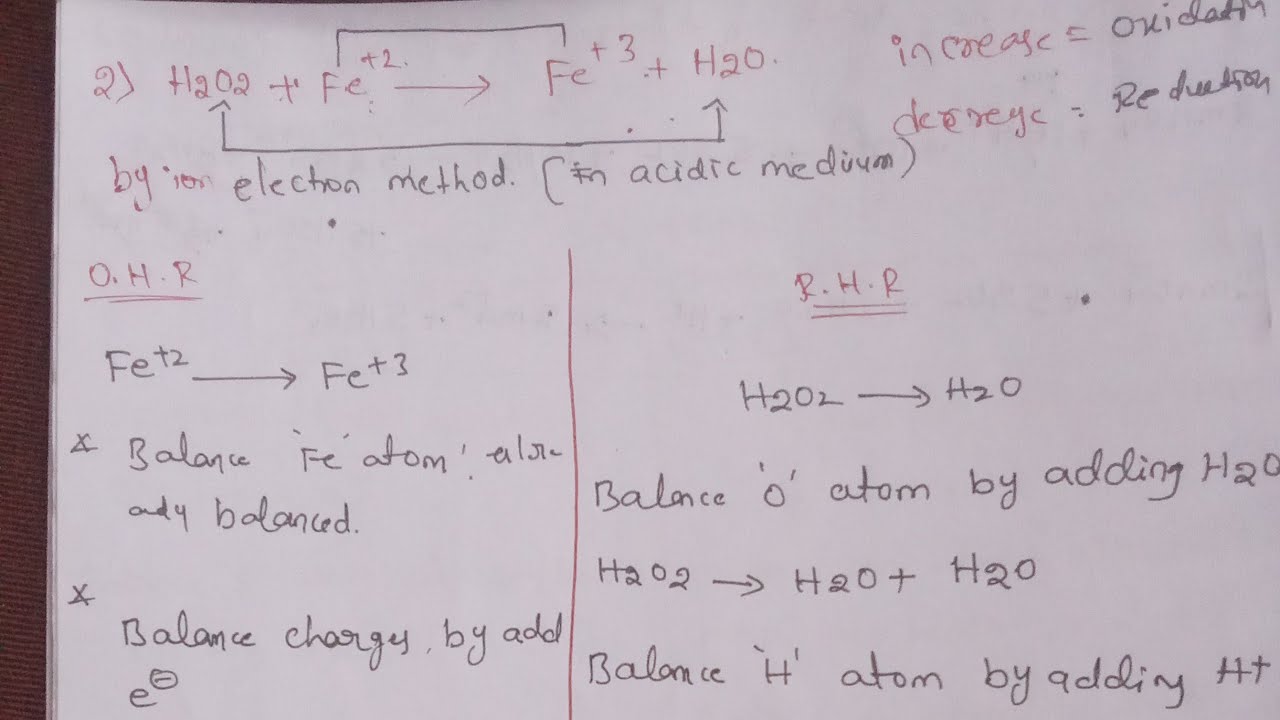 2) H2O2 + Fe+2 → Fe+3 + H2O.
increase = Oxidation
= Reduction
by ion electron method. (In acidic medium)
O.H.R
Fe+2 → Fe+3
* Balance 'Fe' atom' alre
ady balanced.
* Balance charges, by add
e⊖
R.H.R
H2O2 → H2O
Balance 'O' atom by adding H2O
H2O2 → H2O + H2O
Balance 'H' atom by adding H+